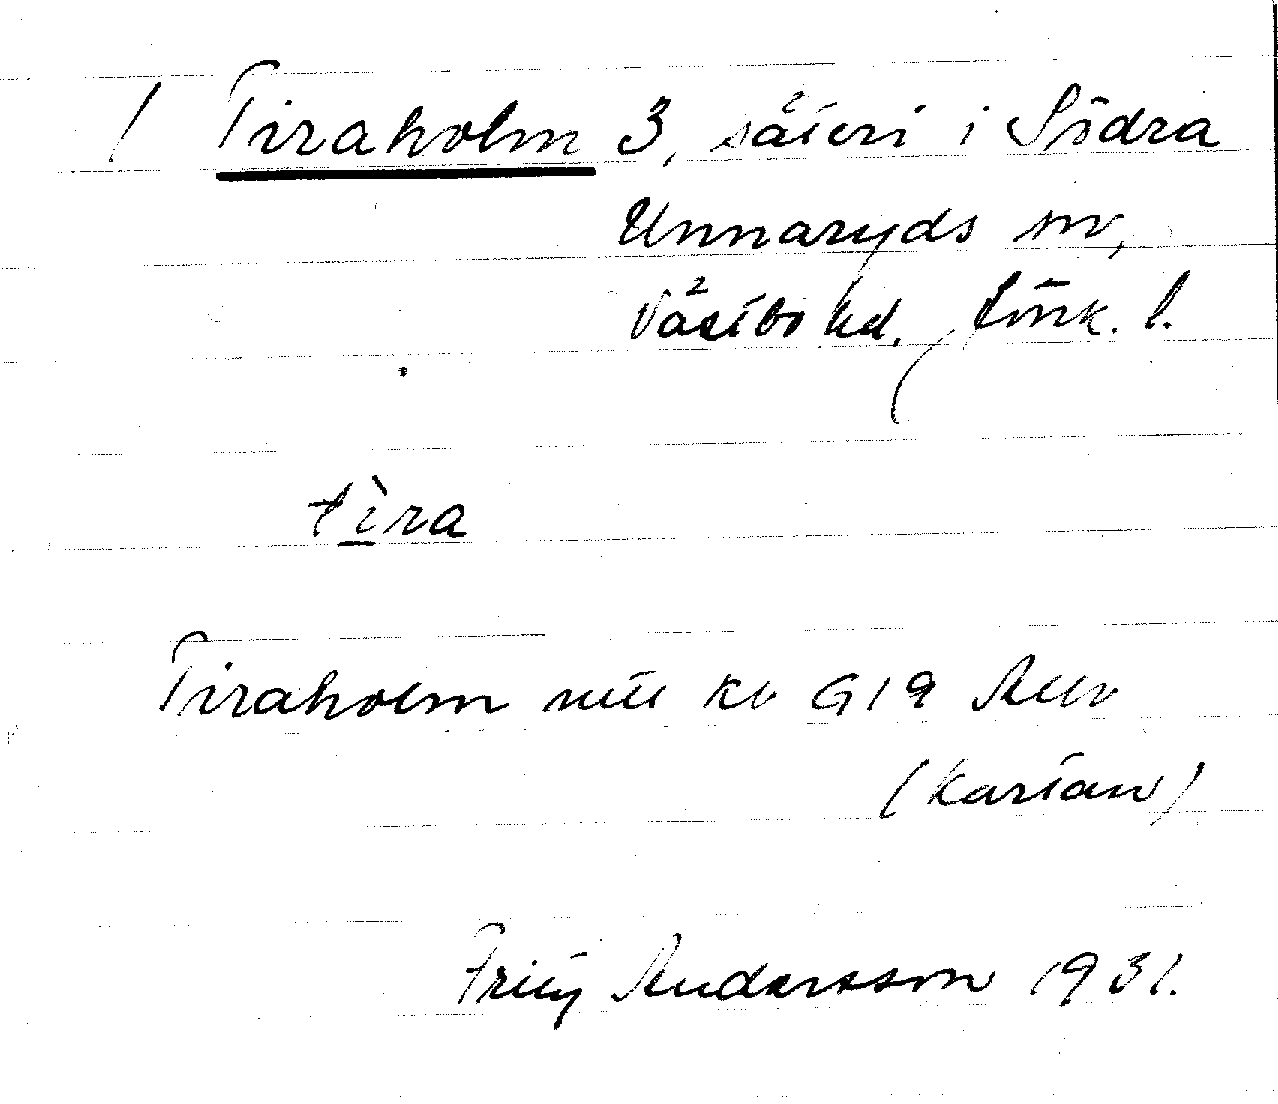 / Tiraholm 3, säteri i Södra
Unnaryds sn,
Västbo hd. Jönk. l.
tìra
Tiraholm nitt kv G19 AUv
(kartan)
Fritz Andersson 1931.